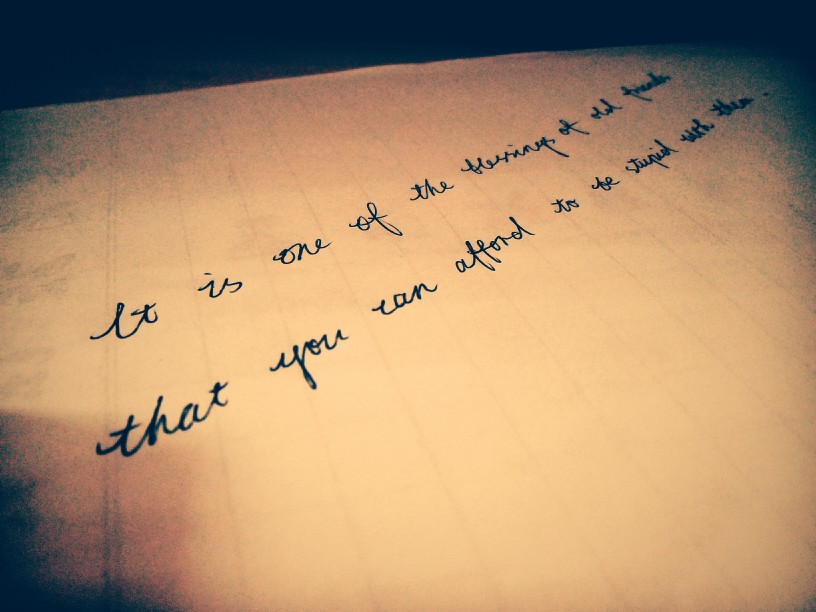 It is one of the blessings of old friends
that you can afford to be stupid with them.